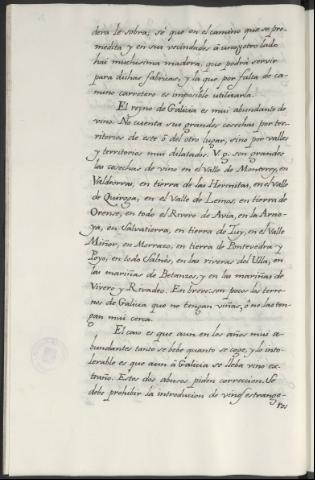 dera le sobra; sé que en el camino que se pre-
medita y en sus vecindades à uno y otro lado
hai muchissima madera, que podrá servir
para dichas fabricas, y la que por falta de ca-
mino carretero es imposible utilizarla.
El reyno de Galicia es mui abundante de
vino. No cuenta sus grandes cosechas por ter-
ritorios de este ò del otro lugar, sino por valles
y territorios mui dilatados. V. g. son grandes
las cosechas de vino en el Valle de Monterrey, en
Valdeorras, en tierra de las Hermitas, en el Valle
de Quiroga, en el Valle de Lemos, en tierra de
Orense, en todo el Rivero de Avia, en la Arno-
ya, en Salvatierra, en tierra de Tuy, en el Valle
Miñor, en Morrazo, en tierra de Pontevedra y
Poyo, en todo Salnès, en las riveras del Ulla, en
las mariñas de Betanzos, y en las mariñas de
Vivero y Rivadeo. En breve: son pocos los terre-
nos de Galicia que no tengan viñas, ò no las ten-
gan mui cerca.
El caso es que aun en los años mui a-
bundantes tanto se bebe quanto se coge, y lo into-
lerable es que aun à Galicia se lleba vino ex-
traño. Estos dos abusos piden correccion. Se
debe prohibir la introducion de vinos estrange-
ros